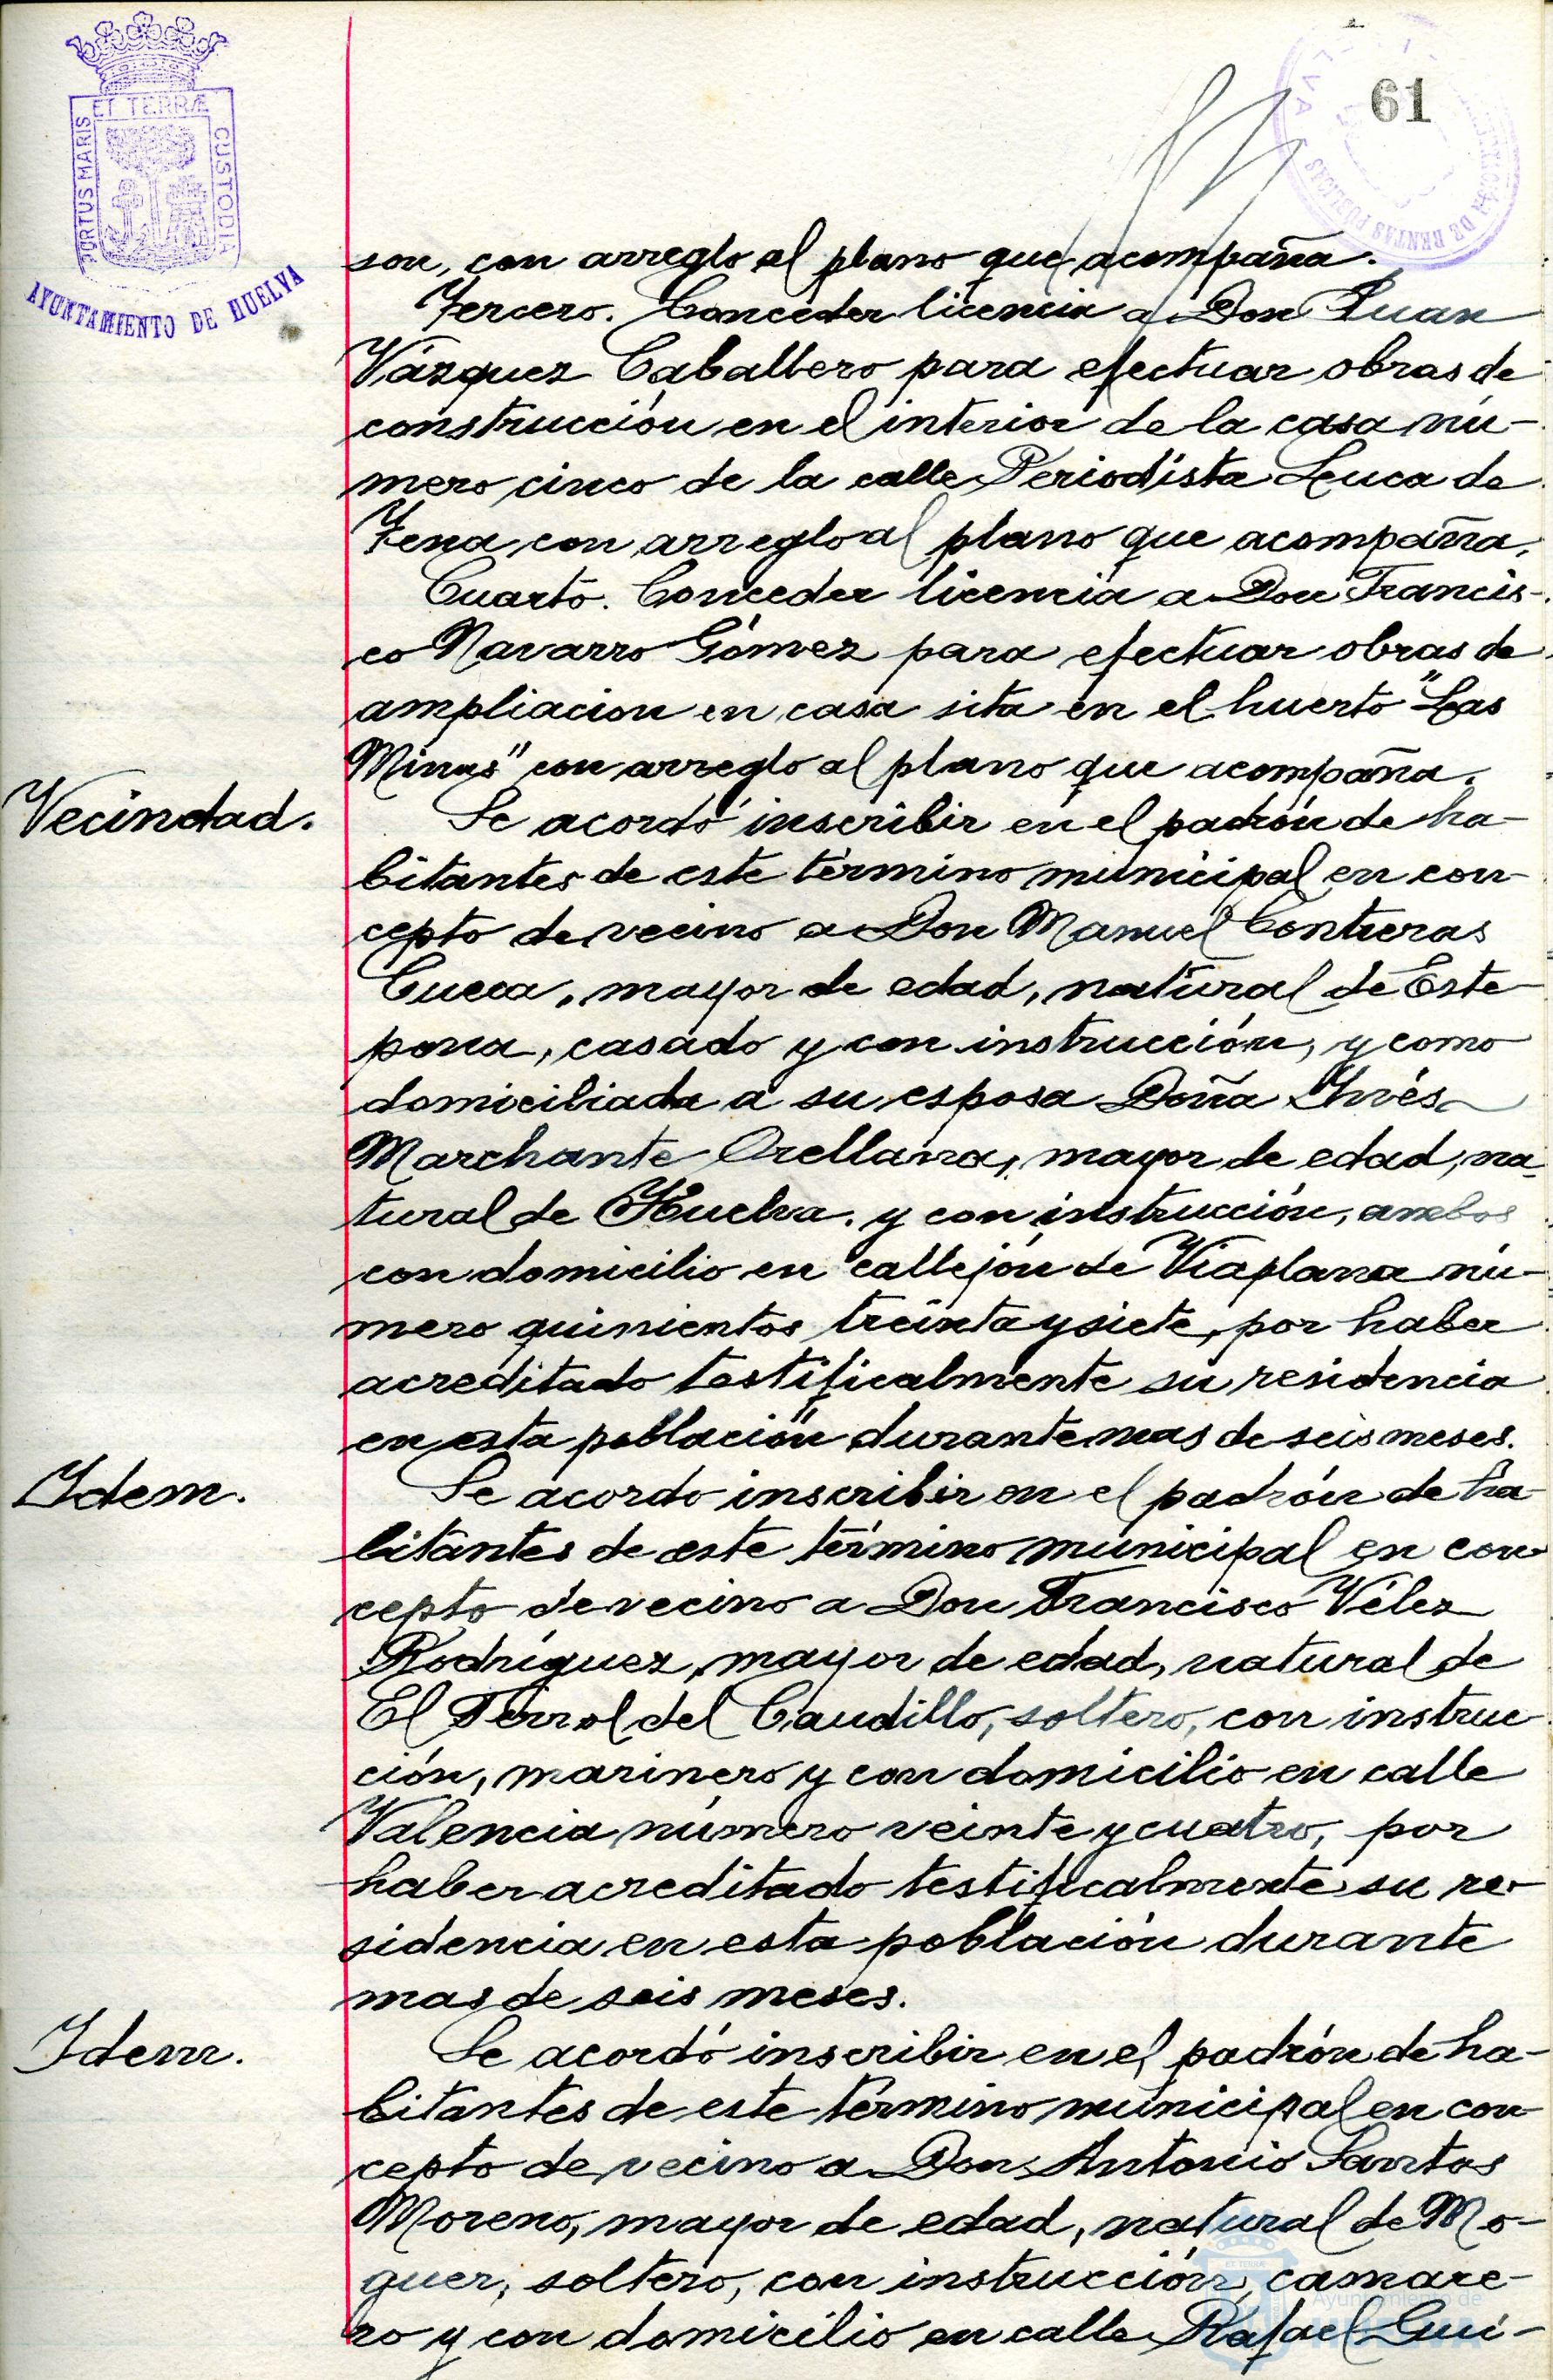 PORTUS MARIS
ET TERRÆ
CUSTODIA
AYUNTAMIENTO DE HUELVA
61
DE RENTAS PÚBLICAS
son, con arreglo al plano que acompaña.
Tercero. Conceder licencia a Don Juan
Vázquez Caballero para efectuar obras de
construcción en el interior de la casa nú-
mero cinco de la calle Periodista Luca de
Tena con arreglo al plano que acompaña.
Cuarto. Conceder licencia a Don Francis-
co Navarro Gómez para efectuar obras de
ampliacion en casa sita en el huerto "Las
Minas" con arreglo al plano que acompaña.
Vecindad.
Se acordó inscribir en el padrón de ha-
bitantes de este término municipal en con-
cepto de vecino a Don Manuel Contreras
Cueca, mayor de edad, natural de Este-
pona, casado y con instrucción, y como
domiciliada a su esposa Doña Inés
Marchante Orellana, mayor de edad, na-
tural de Huelva y con instrucción, ambos
con domicilio en callejón de Viaplana nú-
mero quinientos treinta y siete, por haber
acreditado testificalmente su residencia
en esta población durante mas de seis meses.
Idem.
Se acordo inscribir en el padrón de ha-
bitantes de este término municipal en con-
cepto de vecino a Don Francisco Vélez
Rodríguez, mayor de edad, natural de
El Ferrol del Caudillo, soltero, con instruc-
ción, marinero y con domicilio en calle
Valencia número veinte y cuatro, por
haber acreditado testificalmente su re-
sidencia en esta población durante
mas de seis meses.
Idem.
Se acordó inscribir en el padrón de ha-
bitantes de este término municipal en con-
cepto de vecino a Don Antonio Santos
Moreno, mayor de edad, natural de Mo-
guer, soltero, con instrucción, camare-
ro y con domicilio en calle Rafael Gui-
Ayuntamiento de
HUELVA